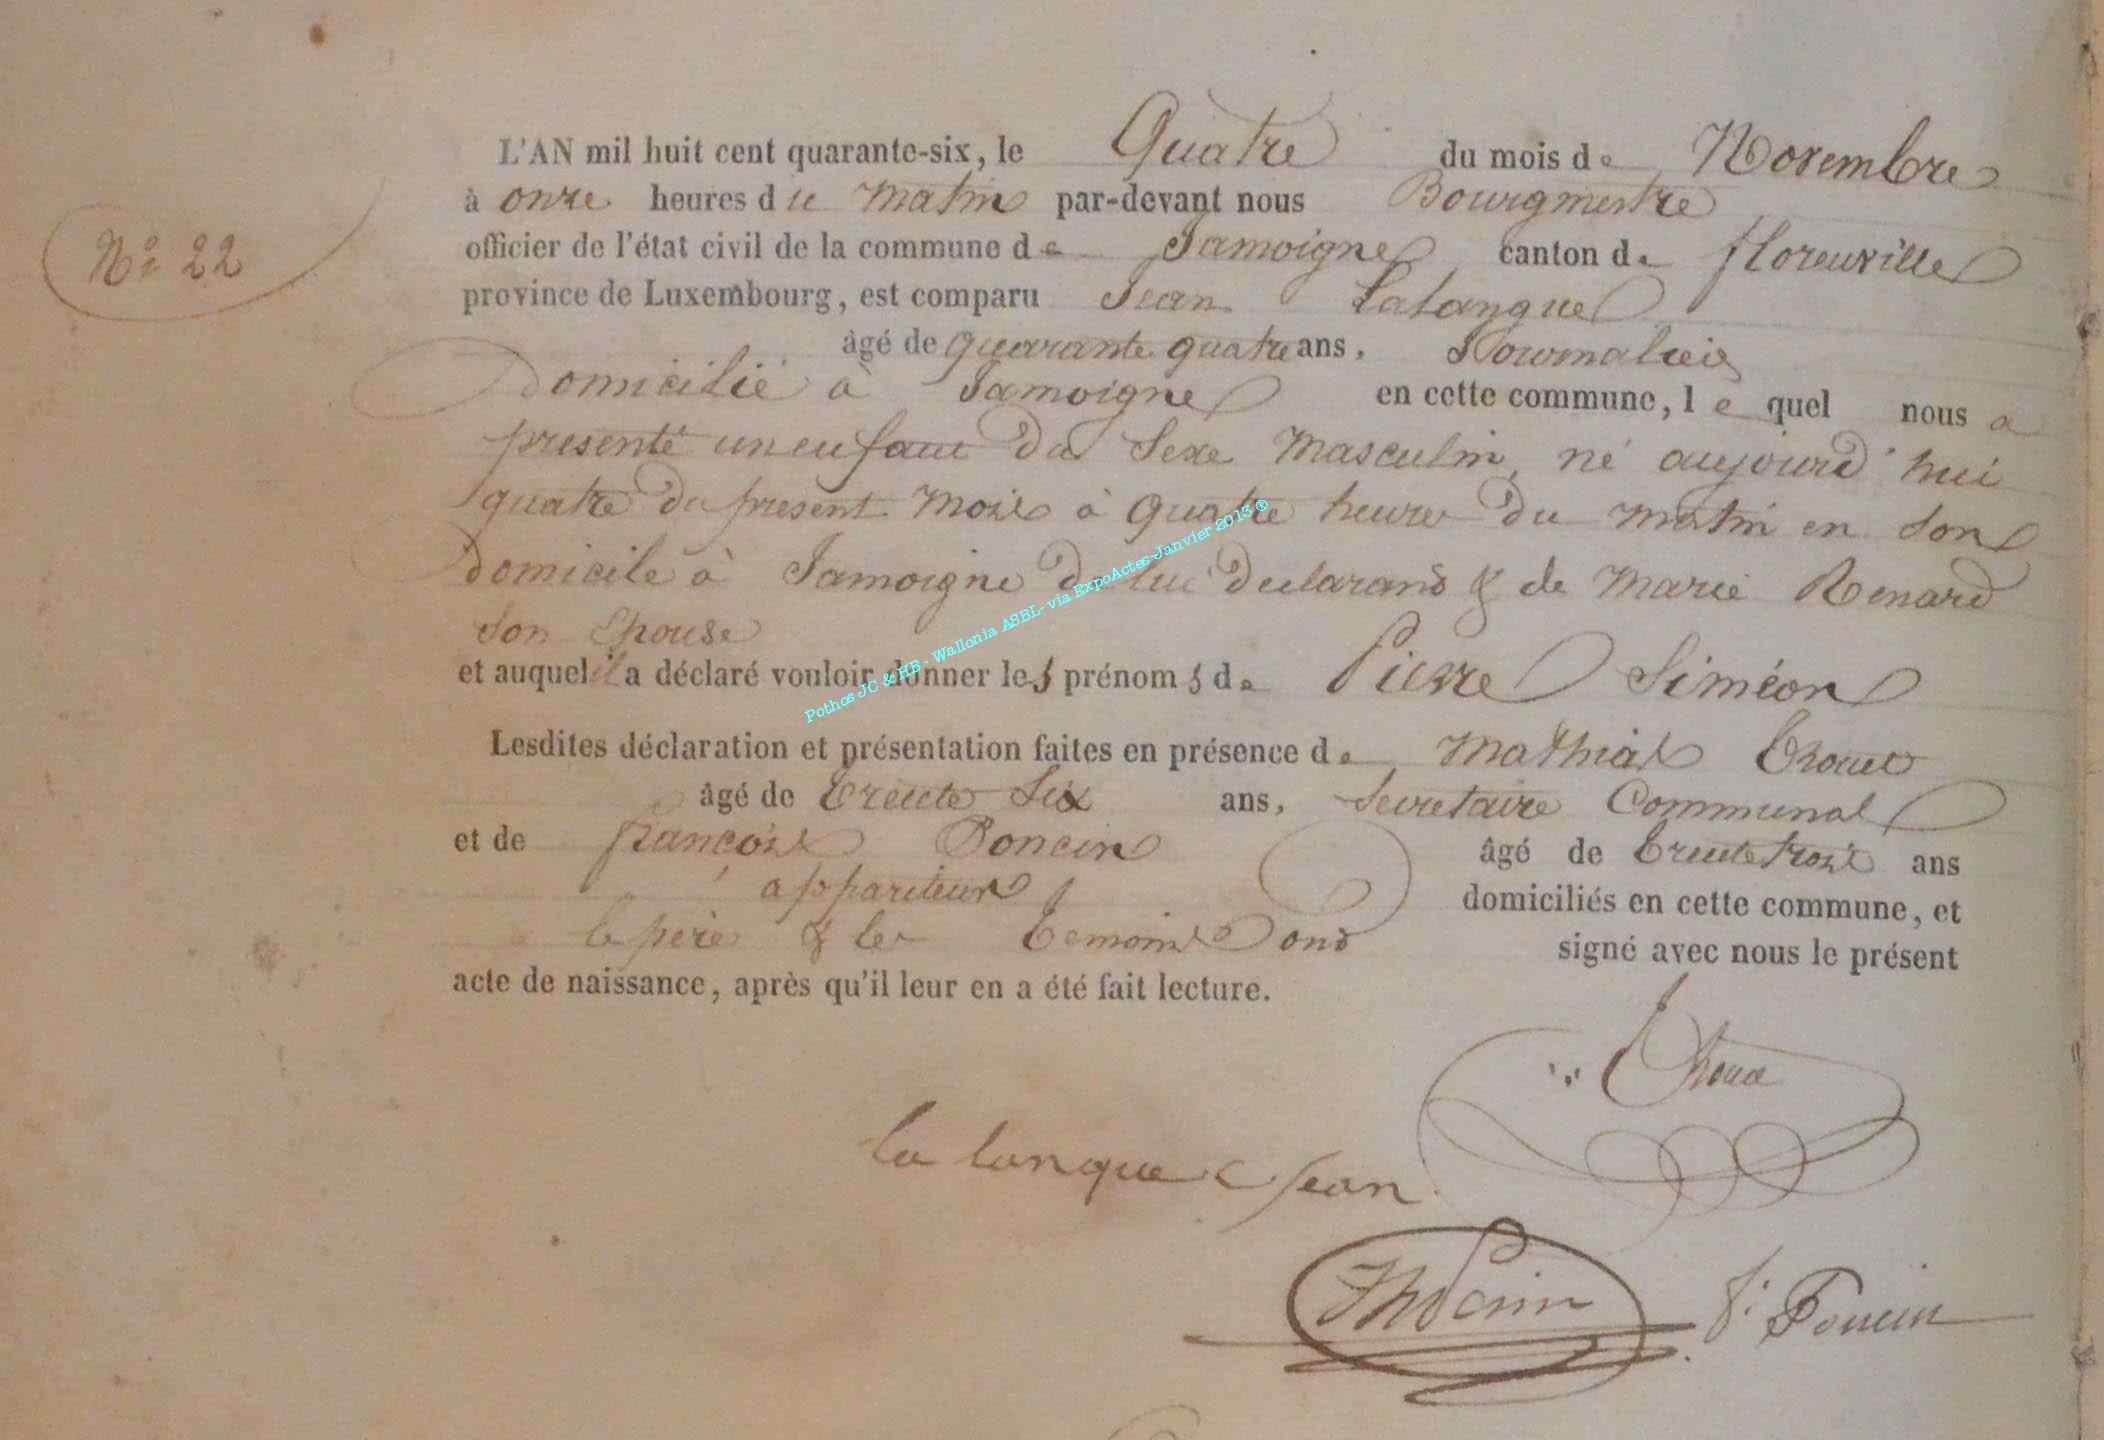 L'AN mil huit cent quarante-six, le Quatre du mois de Novembre
à onze heures du Matin par-devant nous Bourgmestre
Nº 22
officier de l'état civil de la commune de Jamoigne canton de florenville
province de Luxembourg, est comparu Jean Lalangue
âgé de Quarante quatre ans, Journalier
Domicilié à Jamoigne en cette commune, lequel nous a
presenté un enfant du Sexe Masculin, né aujourd'hui
quatre du present Mois à Quatre heures du Matin en son
Domicile à Jamoigne de lui Declarand & de Marie Renard
son Epouse
et auquel il a déclaré vouloir donner les prénoms de Pierre Siméon
Lesdites déclaration et présentation faites en présence de Mathias
âgé de Trente Six ans, Secretaire Communal
et de françois Poncin âgé de Trente trois ans
appariteur domiciliés en cette commune, et
le père & les Temoins ond signé avec nous le présent
acte de naissance, après qu'il leur en a été fait lecture.
la langue Jean
f. Poncin
Pothos JC & HB - Wallonia ASBL- via ExpoActes-Janvier 2013 ®